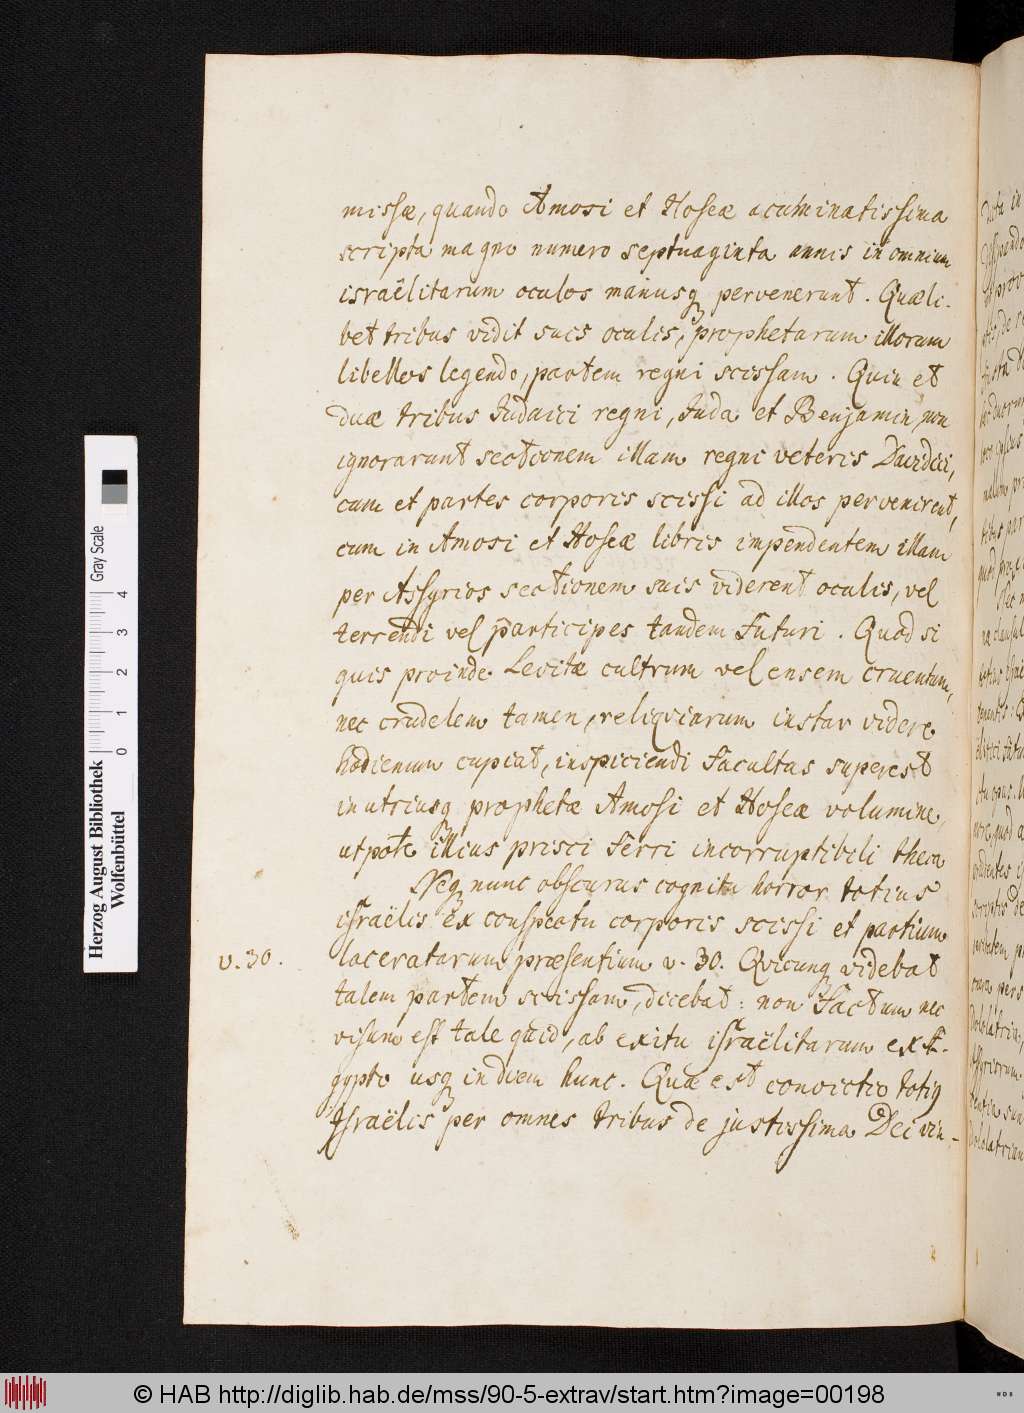 missæ, quando Amosi et Hoseæ acuminatissima
scripta magno numero septuaginta annis in omnium
israëlitarum oculos manusq pervenerunt. Quæli-
bet tribus vidit suis oculis, prophetarum illorum
libellos legendo, partem regni scissam. Quin et
duæ tribus Judaici regni, Juda et Benjamin, non
ignorarunt sectionem illam regni veteris Davidici,
cum et partes corporis scissi ad illos pervenirent,
cum in Amosi et Hoseæ libris impendentem illam
per Assyrios sectionem suis viderent oculis, vel
terrendi vel participes tandem futuri. Quod si
quis proinde Levitæ cultrum vel ensem cruentum,
nec crudelem tamen, reliqviarum instar videre
hodienum cupiat, inspiciendi facultas superest
in utriusq prophetæ Amosi et Hoseæ volumine,
utpote illius prisci ferri incorruptibili theca
Neq nunc obscurus cognitu horror totius
israëlis ex conspectu corporis scissi et partium
v. 30. laceratarum præsentium v. 30. Qvicunq videbat
talem partem scissam, dicebat: non factum nec
visum est tale quid, ab exitu israëlitarum ex Æ-
gypto usq in diem hunc. Quæ est convictio totiq
Israëlis per omnes tribus de justissima Dei vin-
Herzog August Bibliothek
Wolfenbüttel
Gray Scale
0 1 2 3 4
© HAB http://diglib.hab.de/mss/90-5-extrav/start.htm?image=00198